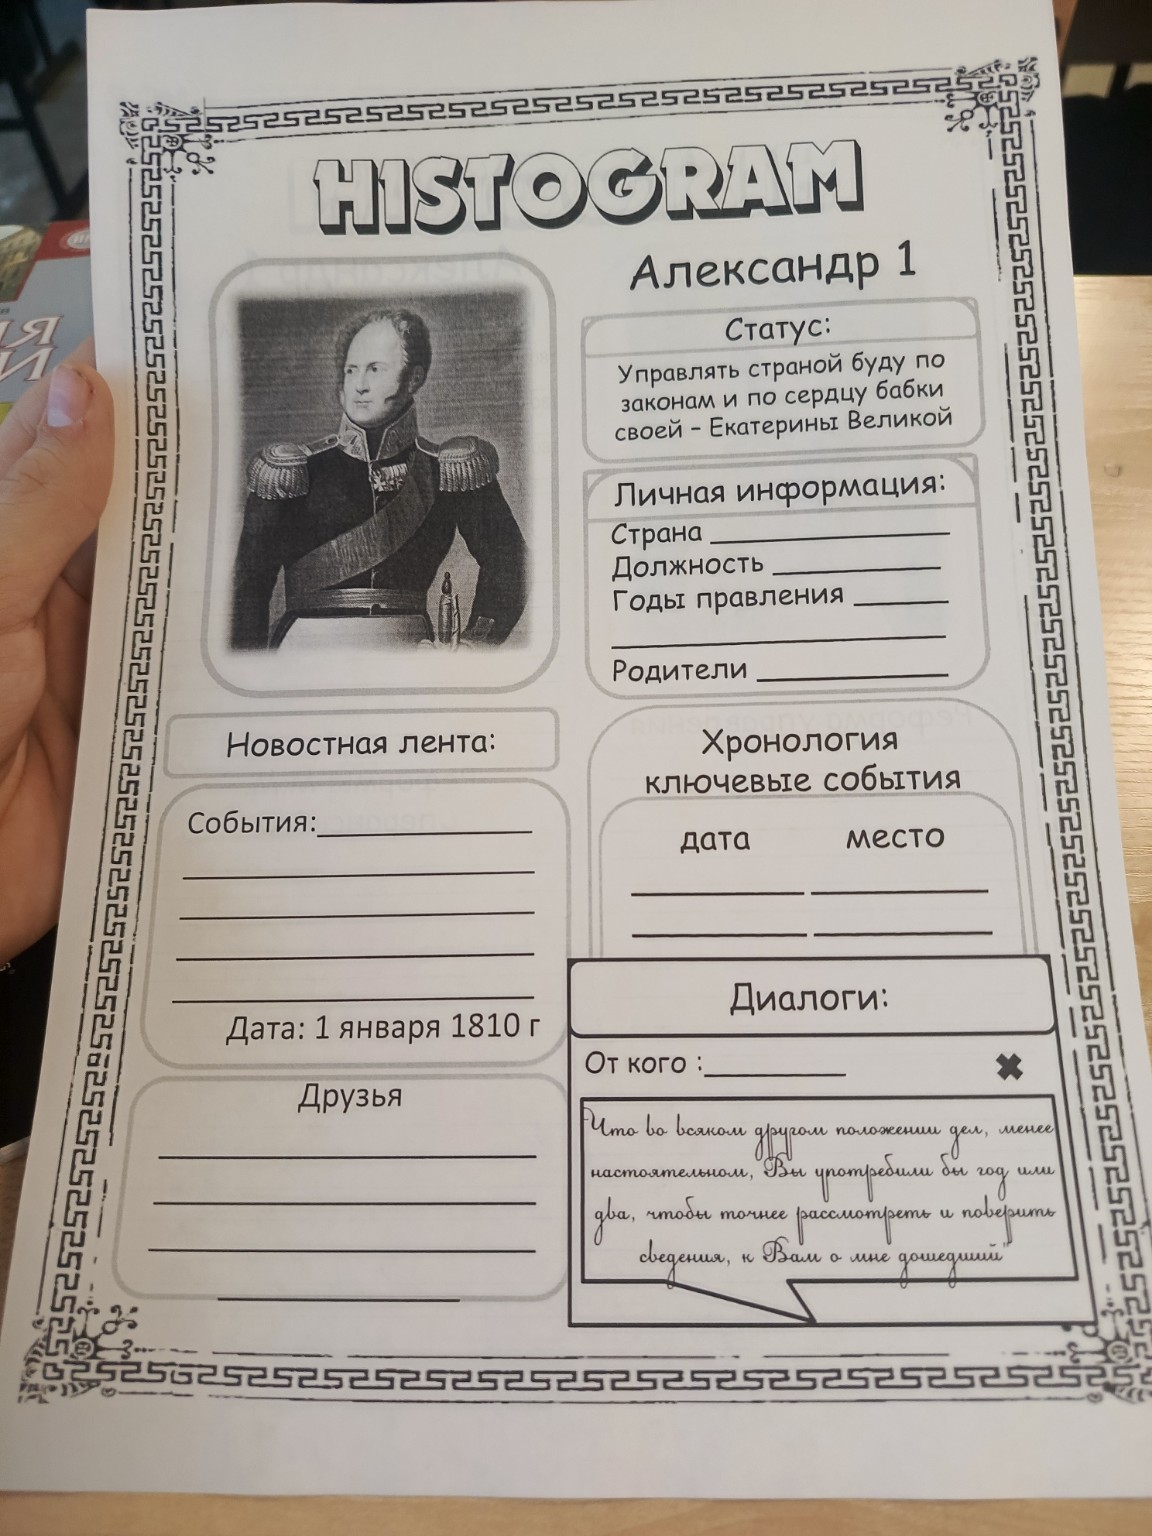 HISTOGRAM
Александр 1
Статус:
Управлять страной буду по
законам и по сердцу бабки
своей – Екатерины Великой
Личная информация:
Страна
Должность
Годы правления
Родители
Новостная лента:
События:
Дата: 1 января 1810 г
Друзья
Хронология
ключевые события
дата место
Диалоги:
От кого :
Что во всяком другом положении дел, менее
настоятельном, Вы употребили бы год или
два, чтобы точнее рассмотреть и поверить
сведения, к Вам о мне дошедший"